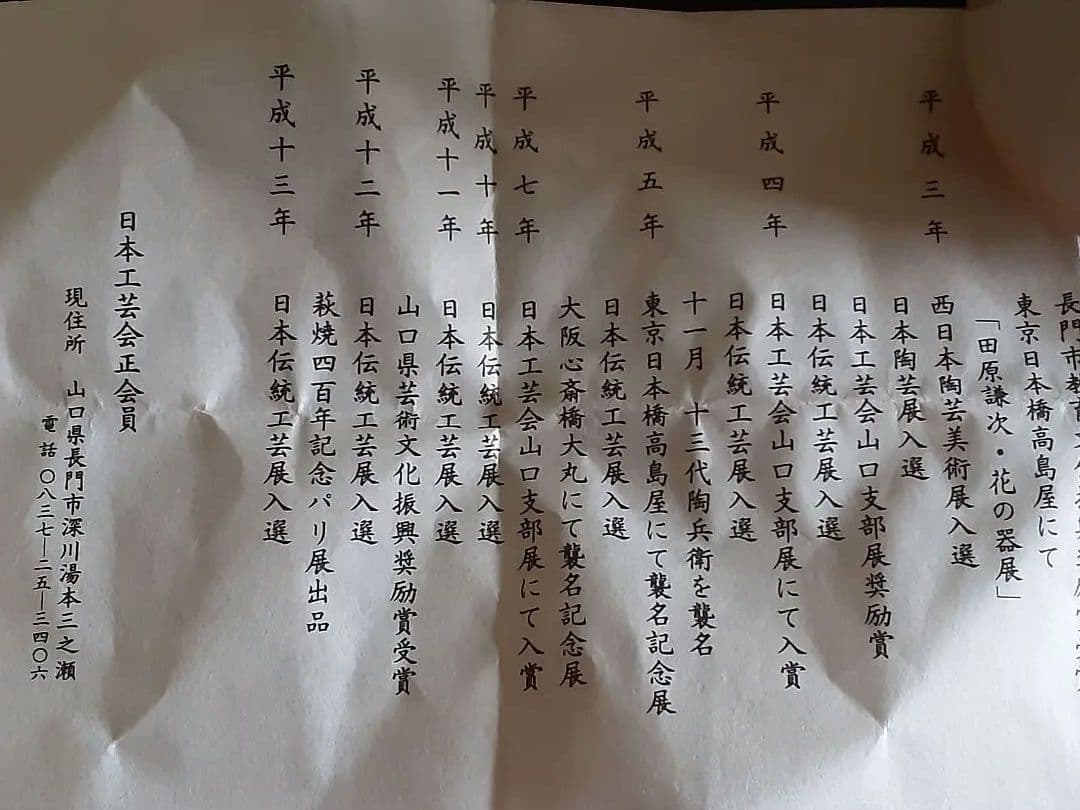 長門市教
東京日本橋高島屋にて
「田原謙次・花の器展」
平成三年 西日本陶芸美術展入選
日本陶芸展入選
日本工芸会山口支部展奨励賞
日本伝統工芸展入選
平成四年 日本工芸会山口支部展にて入賞
日本伝統工芸展入選
十一月 十三代陶兵衛を襲名
平成五年 東京日本橋高島屋にて襲名記念展
日本伝統工芸展入選
大阪心斎橋大丸にて襲名記念展
平成七年 日本工芸会山口支部展にて入賞
平成十年 日本伝統工芸展入選
平成十一年 日本伝統工芸展入選
山口県芸術文化振興奨励賞受賞
平成十二年 日本伝統工芸展入選
萩焼四百年記念パリ展出品
平成十三年 日本伝統工芸展入選
日本工芸会正会員
現住所 山口県長門市深川湯本三之瀬
電話 〇八三七―二五―三四〇六